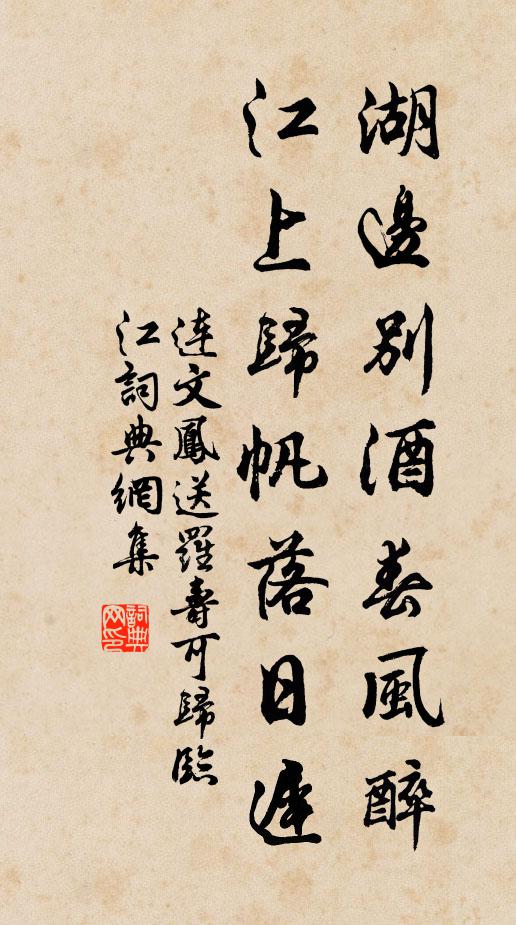 湖邊別酒春風醉
江上歸帆落日遲
連文鳳送羅壽可歸臨
江詞典網集
詞典
网印